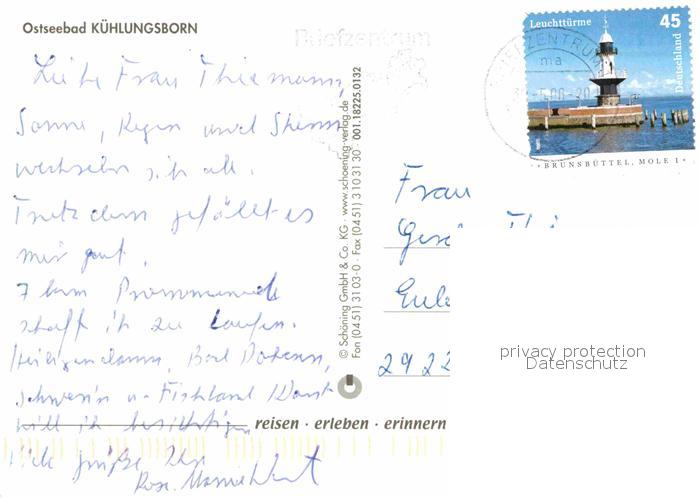 Ostseebad KÜHLUNGSBORN
Liebe Frau Thiemann,
Sonne, Regen und Sturm
wechseln sich ab.
Trotzdem gefällt es
mir gut.
7 km Promenade
schaff ich zu laufen.
Heiligendamm, Bad Doberan,
Schwerin u. Fischland Darst
will ich besichtigen
Viele Grüße Ihre
Rose
reisen · erleben · erinnern
© Schöning GmbH & Co. KG · www.schoening-verlag.de
Fon (0451) 3103-0 · Fax (0451) 3103130 · 001.18225.0132
Briefzentrum
BRIEFZENTRUM
ma
Leuchttürme 45
Deutschland
BRUNSBÜTTEL, MOLE 1
Frau
2922
privacy protection
Datenschutz